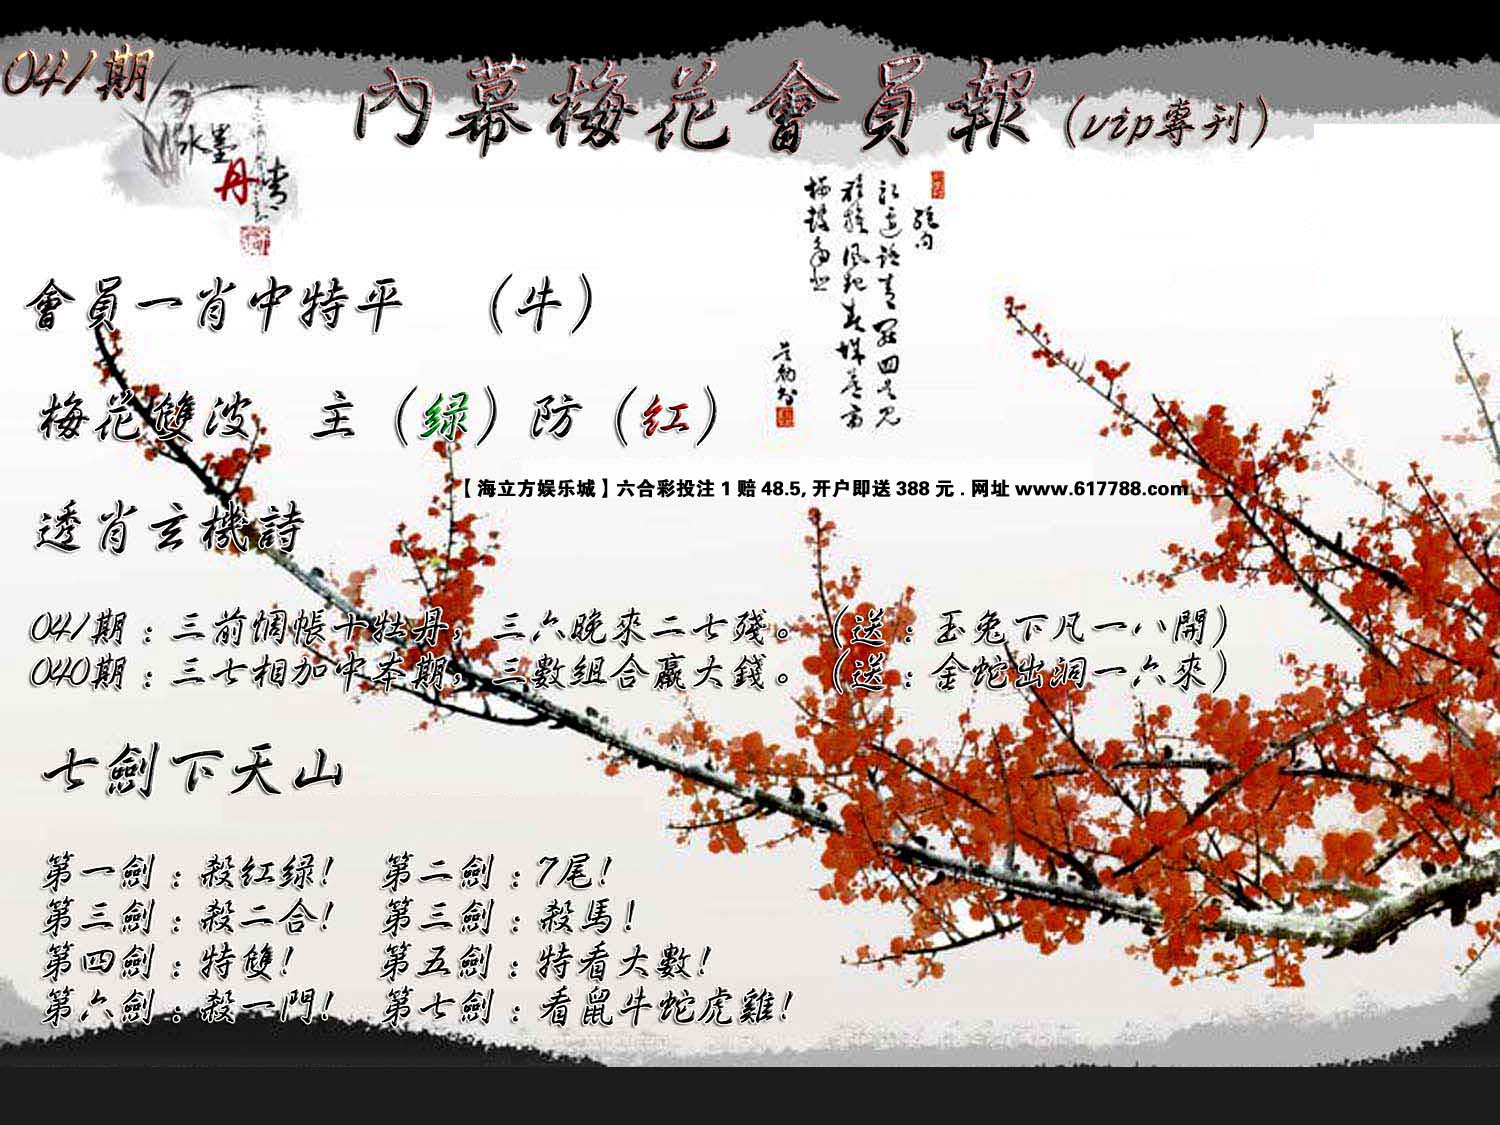 041期
內幕梅花會員報（vip專刊）
水墨
丹青
會員一肖中特平　（牛）
梅花雙波　主（绿）防（红）
【海立方娱乐城】六合彩投注 1 赔 48.5, 开户即送 388 元 . 网址 www.617788.com
透肖玄機詩
041期：三前惆帳十牡丹，三六晚來二七殘。（送：玉兔下凡一八開）
040期：三七相加中本期，三數組合贏大錢。（送：金蛇出洞一六來）
七劍下天山
第一劍：殺红绿!　第二劍：7尾!
第三劍：殺二合!　第三劍：殺馬!
第四劍：特雙!　第五劍：特看大數!
第六劍：殺一門!　第七劍：看鼠牛蛇虎雞!